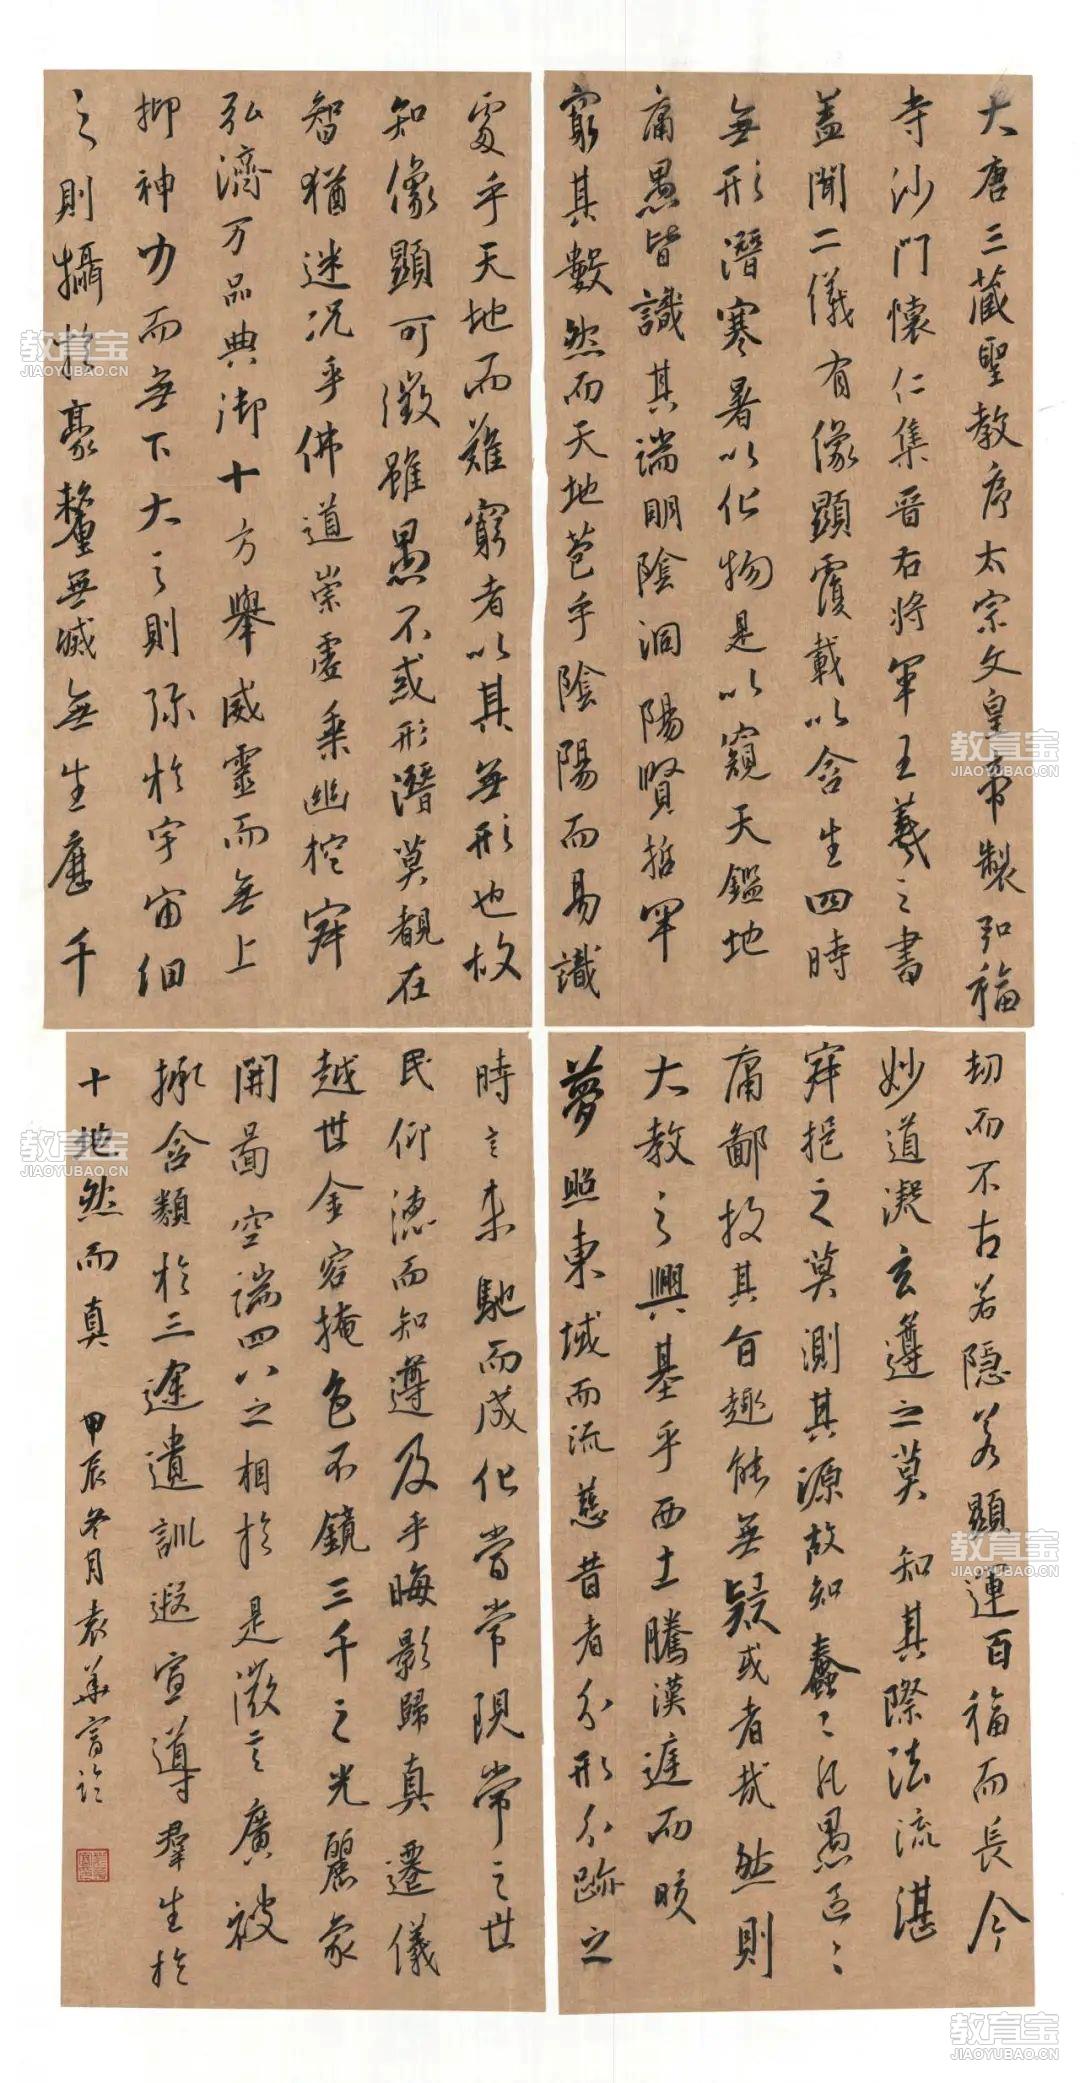 大唐三藏聖教序太宗文皇帝製弘福
寺沙門懷仁集晉右將軍王羲之書
盖聞二儀有像顯覆載以含生四時
無形潛寒暑以化物是以窺天鑑地
庸愚皆識其端明陰洞陽賢哲罕
窮其數然而天地苞乎陰陽而易識
處乎天地而難窮者以其無形也故
知像顯可徵雖愚不惑形潛莫覩在
智猶迷况乎佛道崇虛乘幽控寂
弘濟万品典御十方舉威靈而無上
抑神力而無下大之則弥於宇宙細
之則攝於豪釐無滅無生歷千
劫而不古若隱若顯運百福而長今
妙道凝玄遵之莫知其際法流湛
寂挹之莫測其源故知蠢〻凡愚區〻
庸鄙投其旨趣能無疑或者哉然則
大教之興基乎西土騰漢庭而皎
夢照東域而流慈昔者分形分跡之
時言未馳而成化當常現常之世
民仰德而知遵及乎晦影歸真遷儀
越世金容掩色不鏡三千之光麗象
開圖空端四八之相於是微言廣被
拯含類於三途遺訓遐宣導群生於
十地然而真 甲辰冬月袁華富臨
教育宝
JIAOYUBAO.CN
教育宝
JIAOYUBAO.CN
教育宝
JIAOYUBAO.CN
教育宝
JIAOYUBAO.CN
教育宝
JIAOYUBAO.CN